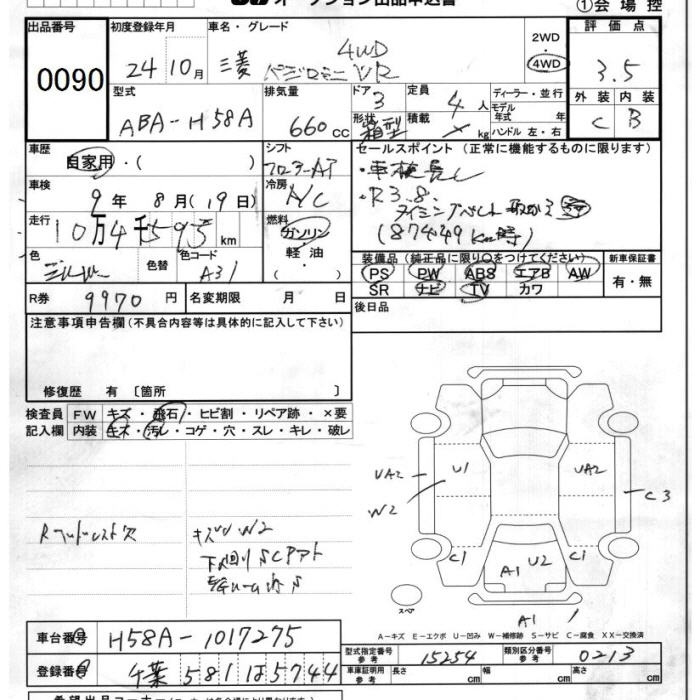 オークション出品申込書 ①会場控
出品番号 初度登録年月 車名・グレード 2WD 評価点
0090 24 10月 三菱 4WD パジェロミニ VR 4WD 3.5
型式 排気量 ドア 定員 ディーラー・並行 外装 内装
ABA-H58A 660cc 3 4人 モデル年式 年 C B
形状 箱型 積載 kg ハンドル 左・右
車歴 シフト セールスポイント (正常に機能するものに限ります)
自家用・( ) フロアAT ・車検長し
車検 冷房 ・R3.8.
9年 8月(19日) A/C タイミングベルト
走行 燃料 (87449km時)
10万4千595km ガソリン・軽油
色 色替 色コード 装備品 (純正品に限り○をつけてください) 新車保証書
シルバー A31 PS PW ABS エアB AW 有・無
SR ナビ TV カワ
R券 9970円 名変期限 月 日 後日品
注意事項申告欄(不具合内容等は具体的に記入して下さい)
修復歴 有 〔箇所 〕
検査員 FW キズ・飛石・ヒビ割・リペア跡・×要
記入欄 内装 キズ・汚レ・コゲ・穴・スレ・キレ・破レ
UA2 U1 UA2
W2 C3
Rヘッドレスト欠 キズW2
下廻りSCアト
C1 U2 C1
A1
スペア
A1
A-キズ E-エクボ U-凹み W-補修跡 S-サビ C-腐食 XX-交換済
車台番号 H58A-1017275
型式指定番号 参考 15254 類別区分番号 参考 0213
登録番号 千葉 581 ほ 5744
車庫証明用 参考 長さ cm 幅 cm 高さ cm